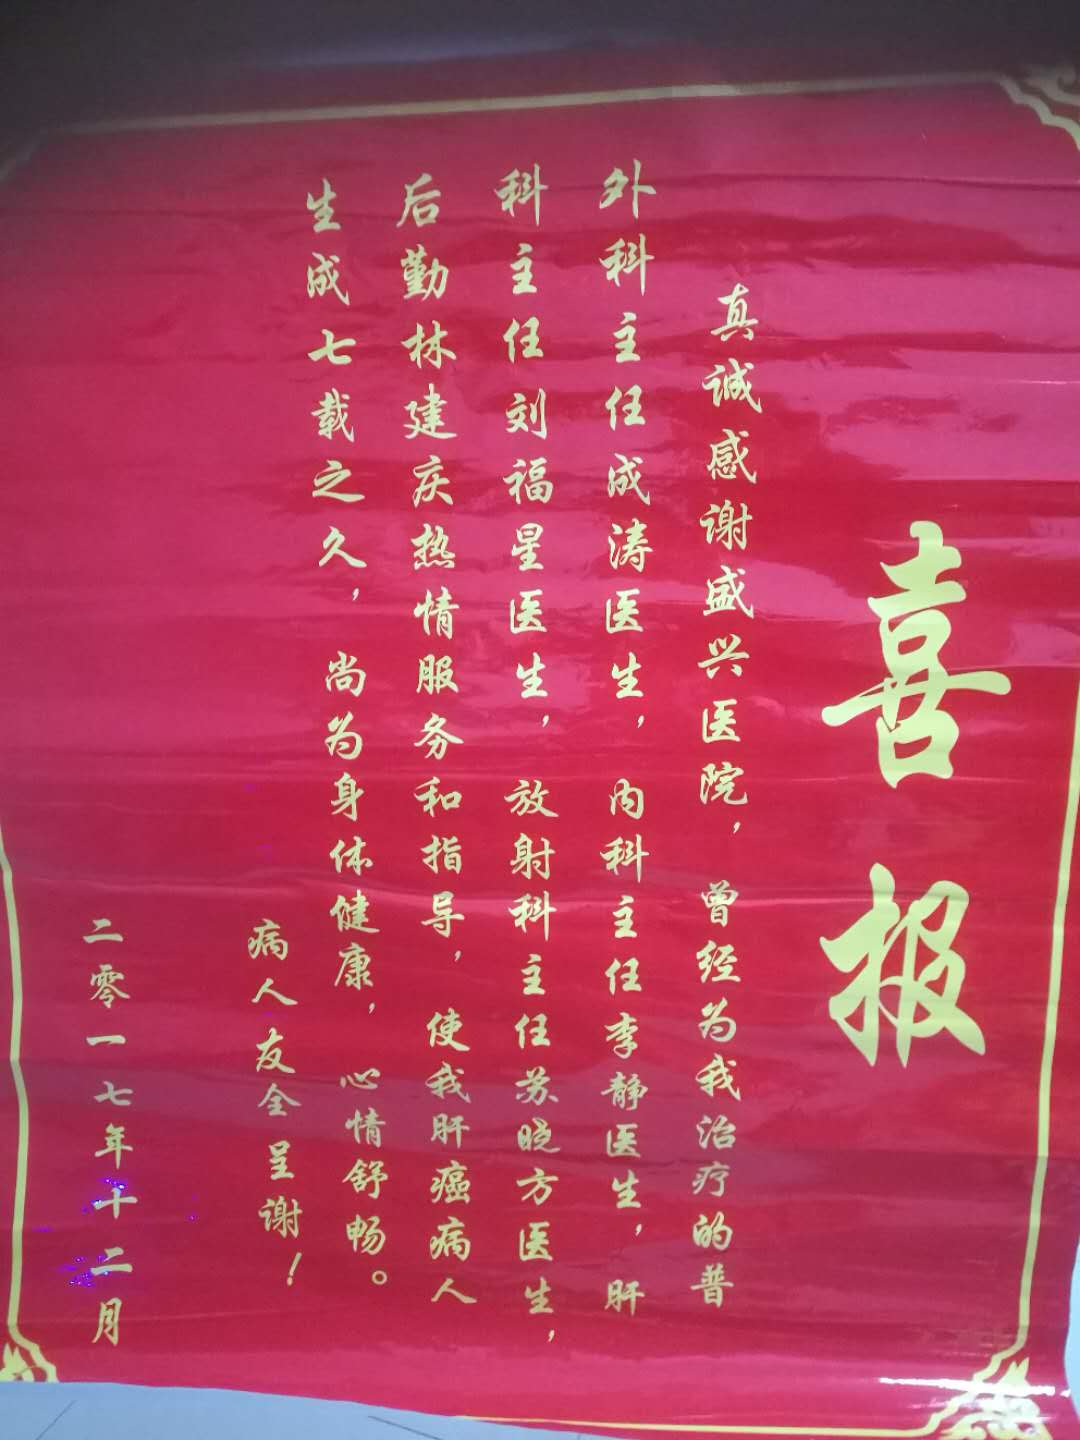 喜报
真诚感谢盛兴医院，曾经为我治疗的普
外科主任成涛医生，内科主任李静医生，肝
科主任刘福星医生，放射科主任苏晓方医生，
后勤林建庆热情服务和指导，使我肝癌病人
生成七载之久，尚为身体健康，心情舒畅。
病人友全呈谢！
二零一七年十二月